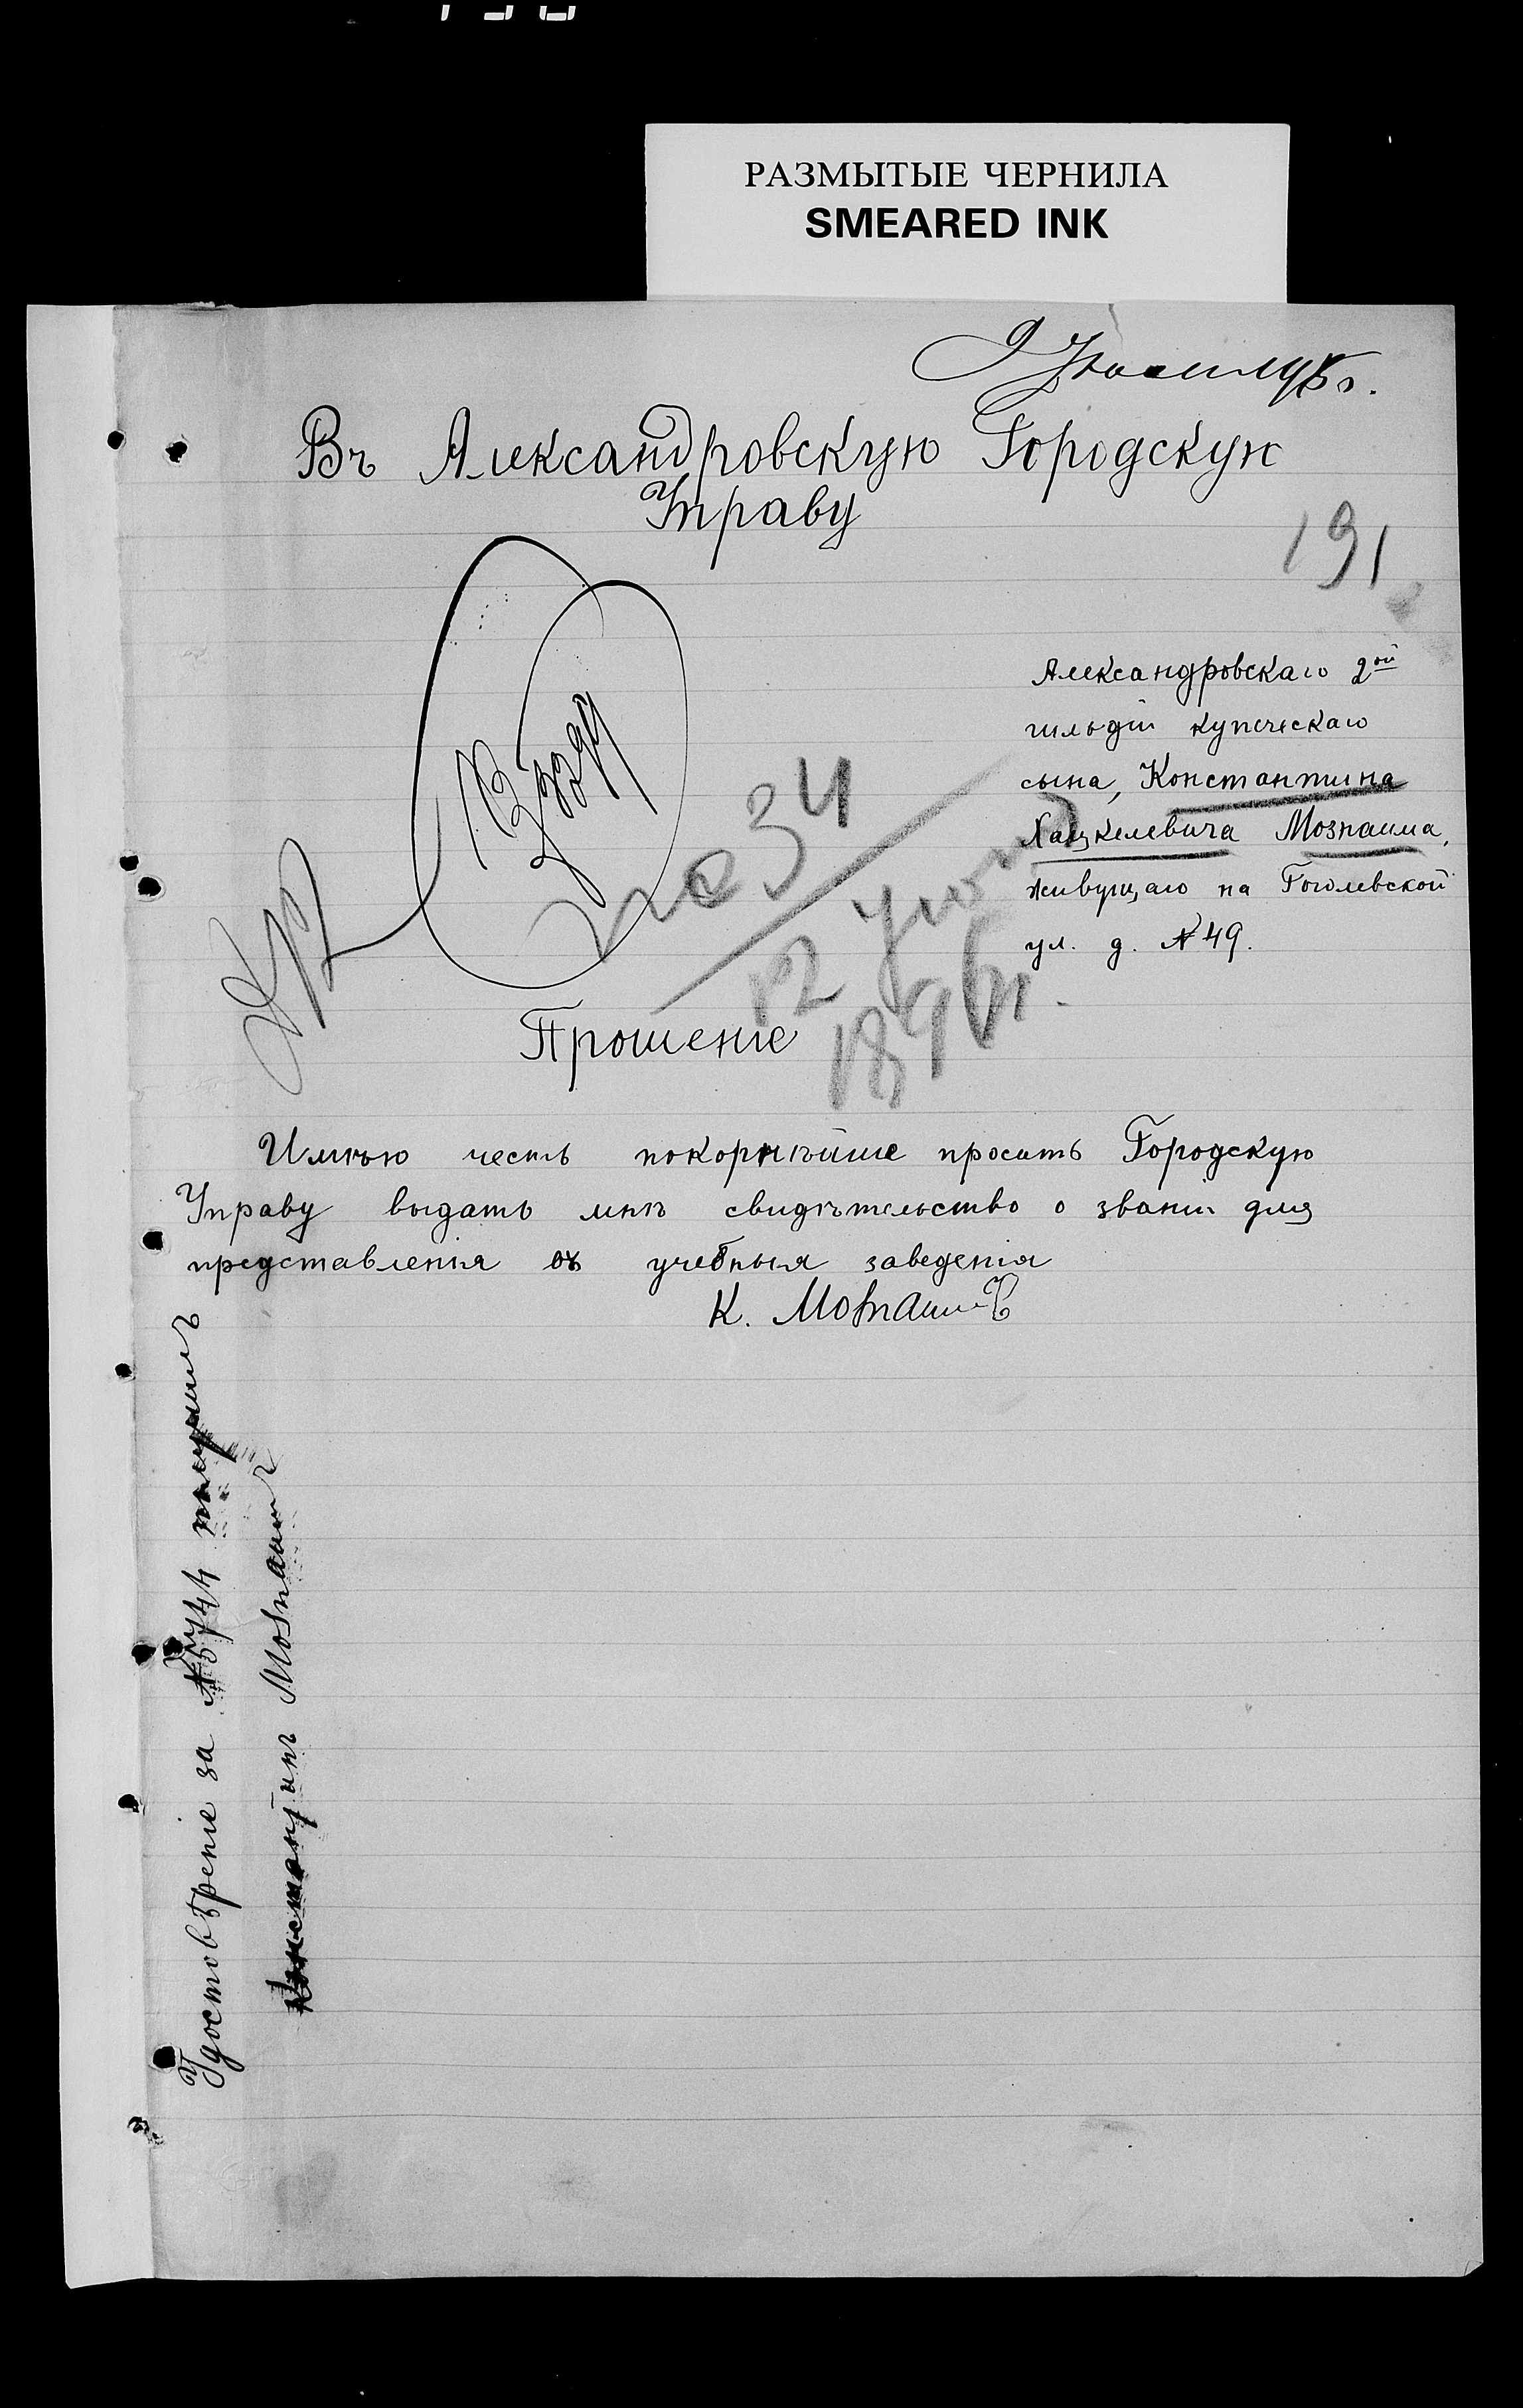 РАЗМЫТЫЕ ЧЕРНИЛА
SMEARED INK
Въ Александровскую Городскую
Управу
191
Александровскаго 2ой
гильдіи купеческаго
сына, Константина
Хацкелевича Мознаима,
живущаго на Гоголевской
ул. д. № 49.
2034
12
1896 г.
Прошеніе
Имѣю честь покорнѣйше просить Городскую
Управу выдать мнѣ свидѣтельство о званіи для
представленія въ учебныя заведенія
К. Мознаимъ
Удостовѣреніе за № получилъ
Константинъ Мознаимъ